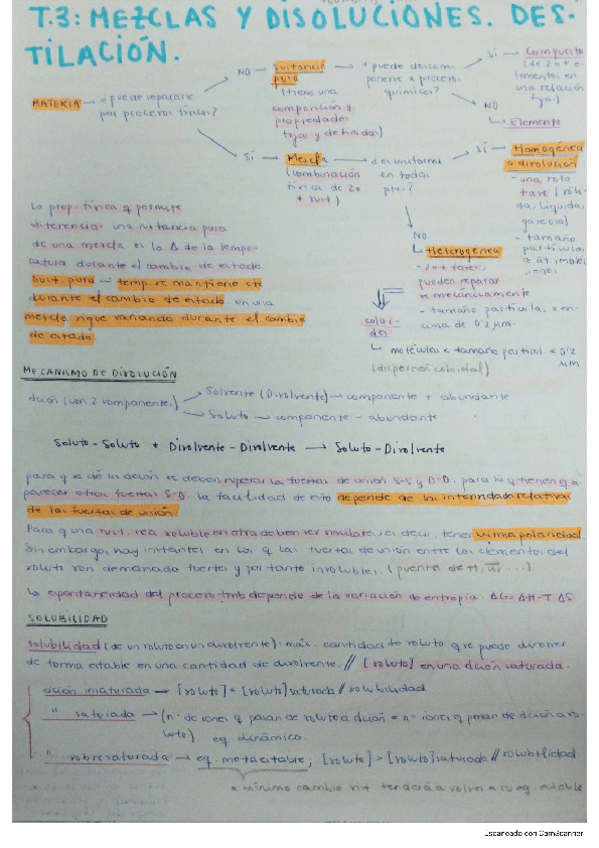 T.3: MEZCLAS Y DISOLUCIONES. DES-
TILACIÓN.
MATERIA
¿puede separarse
por procesos físicos?
NO
Sustancia
pura
(tiene una
composición y
propiedades
fijas y definidas)
¿puede descom-
ponerse x procesos
químicos?
SÍ
Compuesto
(de 2 o + e-
lementos en
una relación
fija)
NO
Elemento
SÍ
Mezcla
(combinación
física de 2 o
+ sust)
¿es uniforme
en todas
partes?
SÍ
Homogénea
o disolución
- una sola
fase (sóli-
da, líquida,
gaseosa)
- tamaño
partículas
NO
Heterogénea
- 2 o + fases,
pueden separar
se mecánicamente
- tamaño partículas x en-
cima de 0'2 μm.
coloi-
des
moléculas x tamaño partícul < 0'2
μm
(dispersión coloidal)
La prop. física q permite
diferenciar una sustancia pura
de una mezcla es la Δ de la tempe-
ratura durante el cambio de estado.
Sust. pura - temp. se mantiene cte
durante el cambio de estado. en una
mezcla sigue variando durante el cambio
de estado.
MECANISMO DE DISOLUCIÓN
dción (con 2 componentes)
Solvente (Disolvente) → componente + abundante
Soluto → componente - abundante
Soluto - Soluto + Disolvente - Disolvente → Soluto - Disolvente
para q se dé la dción se deben superar las fuerzas de unión S-S y D-D. para lo q tienen q a
parecer otras fuerzas S-D. La facilidad de esto depende de las intensidades relativas
de las fuerzas de unión.
Para q una sust. sea soluble en otra deben ser similares, es decir, tener misma polaridad
Sin embargo, hay instantes en los q las fuerzas de unión entre los elementos del
soluto son demasiado fuertes y por tanto insolubles. (puentes de H, ...)
La espontaneidad del proceso tmb depende de la variación de entropía. ΔG = ΔH - T·ΔS
SOLUBILIDAD
solubilidad (de un soluto en un disolvente): máx. cantidad de soluto que se puede disolver
de forma estable en una cantidad de disolvente. // [soluto] en una dción saturada.
dción insaturada → [soluto] < [soluto] saturada // solubilidad
" saturada → (n° de iones q pasan de soluto a dción = n° iones q pasan de dción a so-
luto). eq. dinámico.
" sobresaturada → eq. metaestable; [soluto] > [soluto] saturada // solubilidad
a mínimo cambio tenderá a volver a su eq. estable
Escaneado con CamScanner